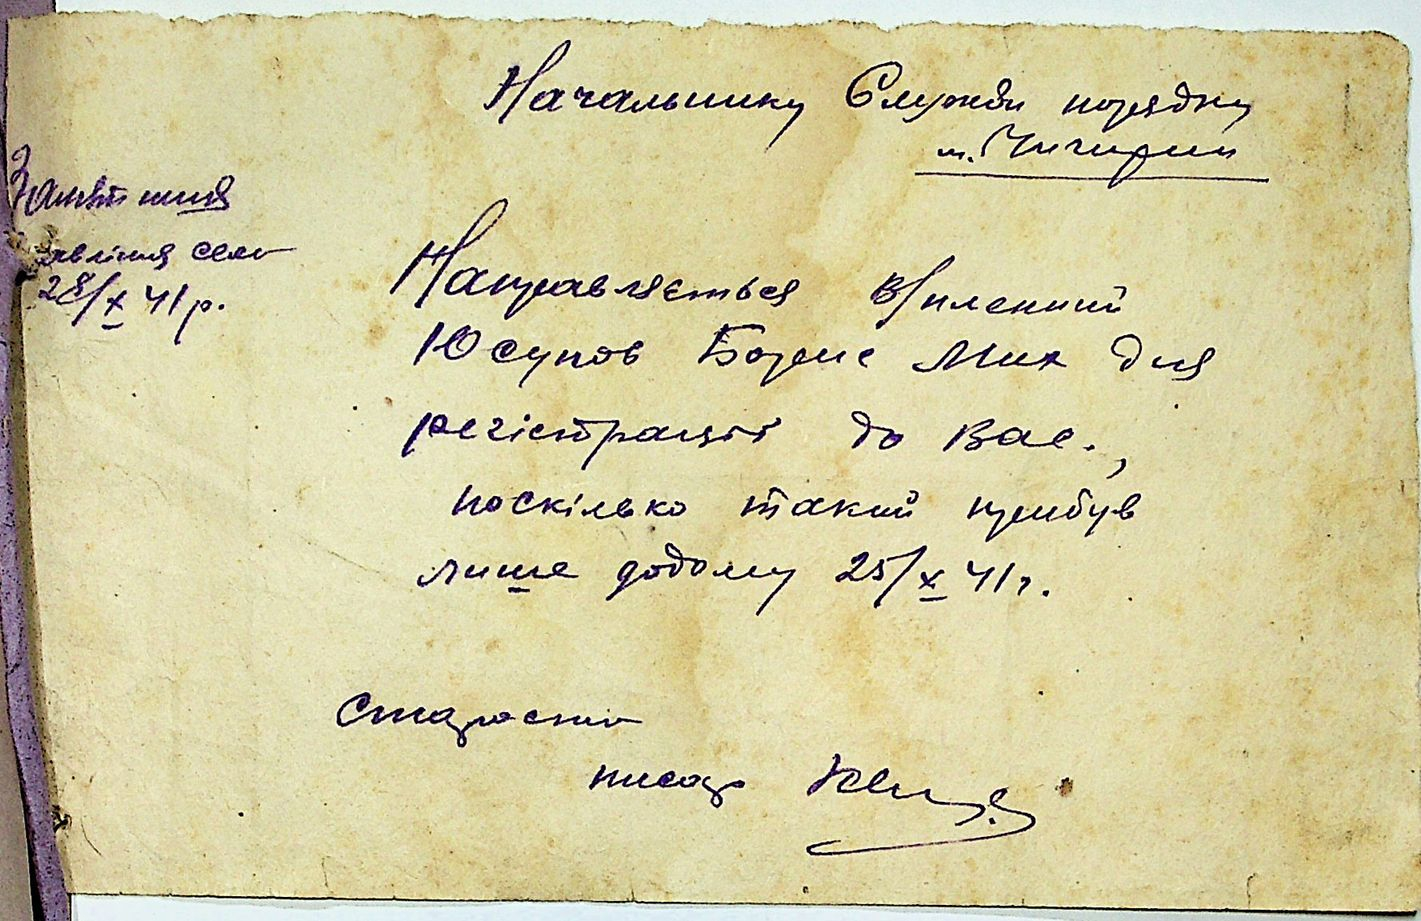 Начальнику Служби порядку
м. Чигирин
управління села
28/X 41 р.
Направляється в/пленний
Юсупов Борис Мих для
регістрації до Вас.,
поскілько такий прибув
лише додому 25/X 41 г.
Староста
писар